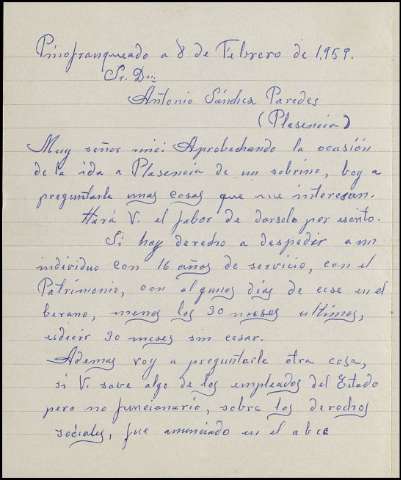 Pinofranqueado a 8 de Febrero de 1.959.
Sr. Don
Antonio Sánchez Paredes
(Plasencia)
Muy señor mio: Aprobechando la ocasión
de la ida a Plasencia de un sobrino, boy a
preguntarle unas cosas que me interesan.
Hará V. el fabor de darselo por escrito.
Si hay derecho a despedir a un
individuo con 16 años de servicio, con el
Patrimonio, con algunos dias de cese en el
berano, menos los 30 meses ultimos,
es decir 30 meses sin cesar.
Ademas voy a preguntarle otra cosa,
si V. sabe algo de los empleados del Estado
pero no funcionario, sobre los derechos
sociales, fue anunciado en el abce